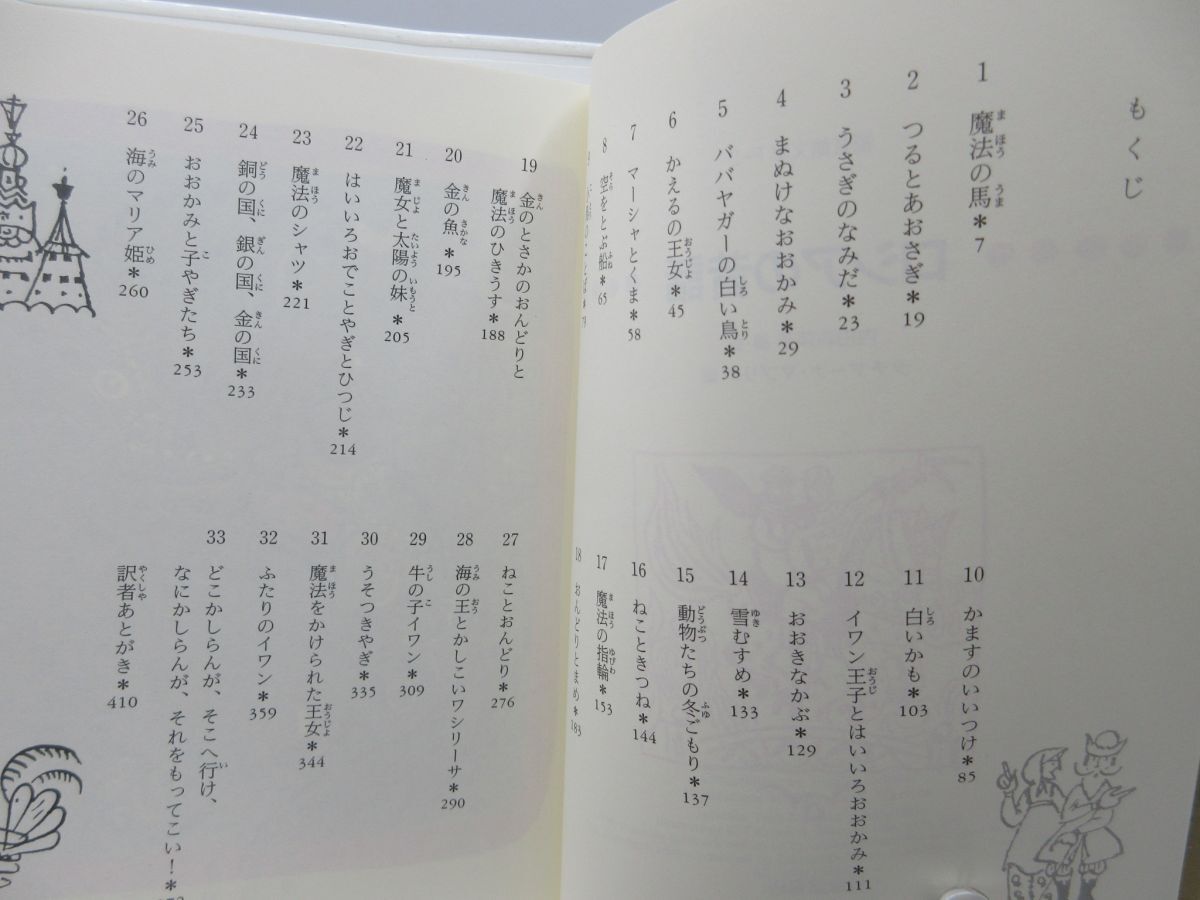 もくじ
1 魔法の馬＊7
2 つるとあおさぎ＊19
3 うさぎのなみだ＊23
4 まぬけなおおかみ＊29
5 ババヤガーの白い鳥＊38
6 かえるの王女＊45
7 マーシャとくま＊58
8 空をとぶ船＊65
10 かますのいいつけ＊85
11 白いかも＊103
12 イワン王子とはいいろおおかみ＊111
13 おおきなかぶ＊129
14 雪むすめ＊133
15 動物たちの冬ごもり＊137
16 ねこときつね＊144
17 魔法の指輪＊153
18 おんどりとまめ＊183
19 金のとさかのおんどりと
魔法のひきうす＊188
20 金の魚＊195
21 魔女と太陽の妹＊205
22 はいいろおでことやぎとひつじ＊214
23 魔法のシャツ＊221
24 銅の国、銀の国、金の国＊233
25 おおかみと子やぎたち＊253
26 海のマリア姫＊260
27 ねことおんどり＊276
28 海の王とかしこいワシリーサ＊290
29 牛の子イワン＊309
30 うそつきやぎ＊335
31 魔法をかけられた王女＊344
32 ふたりのイワン＊359
33 どこかしらんが、そこへ行け、
なにかしらんが、それをもってこい！＊
訳者あとがき＊410